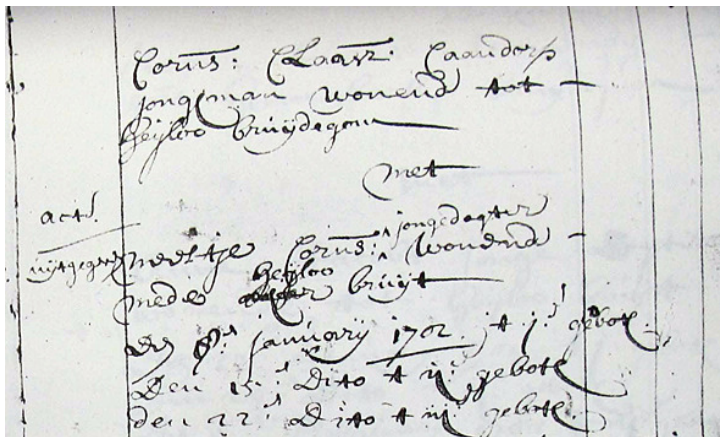 Corns: Claasz: Caandorp
jongman wonend tot
heyloo bruydegom
met
act:
uytgegeven
neeltje Corns: jongedogter wonend
mede heyloo bruyt
Den 8:e january 1702 't j:e gebot
Den 15:e Dito 't ij:e gebot
den 22:e Dito 't iij:e gebot